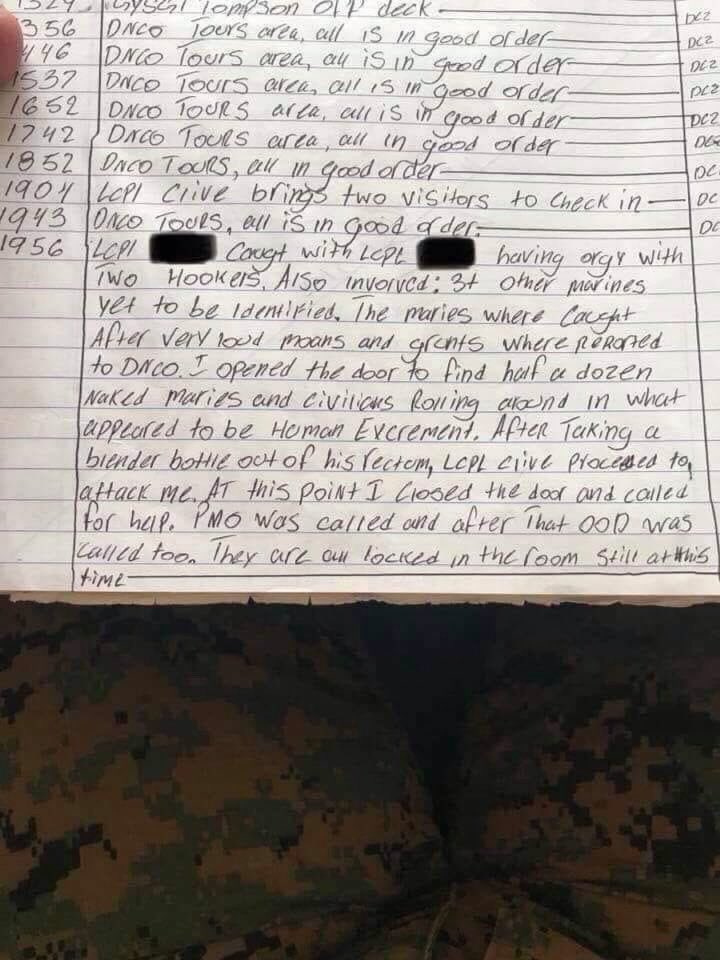 1324 GySgt Tompson off deck
1356 DNCO Tours area, all is in good order DC2
1446 DNCO Tours area, all is in good order DC2
1537 DNCO Tours area, all is in good order DC2
1652 DNCO Tours area, all is in good order DC2
1742 DNCO Tours area, all in good order
1852 DNCO Tours, all in good order DC
1904 LCPl Clive brings two visitors to check in DC
1943 DNCO Tours, all is in good order. DC
1956 LCPl Caugt with LCPL having orgy with
Two Hookers. Also involved: 3+ other marines
yet to be identified. The maries where Caught
After very loud moans and grunts where reported
to DNCO. I opened the door to find half a dozen
Naked maries and civilians Rolling around in what
appeared to be Human Excrement. After Taking a
blender bottle out of his rectum, LCPL Clive proceeded to
attack me. At this point I closed the door and called
for help. PMO was called and after that OOD was
called too. They are all locked in the room still at this
time